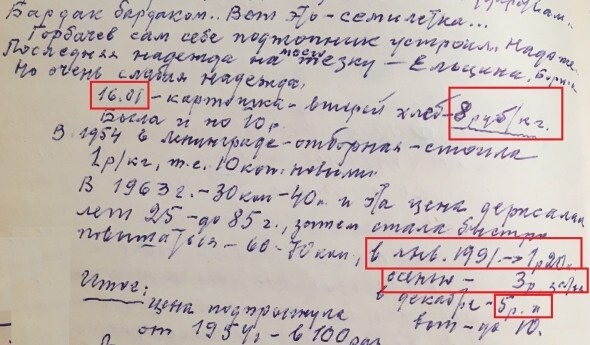 Бардак бардаком.. Вот это - семилетка...
Горбачев сам себе подтопник устроил. Надо же.
Последняя надежда на моего тезку - Ельцина, Бориса
Но очень слабая надежда.
16.01 - картошка - второй хлеб - 8 руб/кг.
Была и по 10 р.
В 1954 в Ленинграде - отборная - стоила
1 р/кг, т.е. 10 коп. новыми
В 1963 г. - 30 коп - 40к. и эта цена держалась
лет 25 - до 85 г., затем стала быстро
повышаться - 60-70 коп., в янв. 1991 -> 1р 20к.
осенью - 3р.
в декабре - 5р. и
вот - до 10.
Итог:
цена подпрыгнула
от 1954 г. - в 100 раз